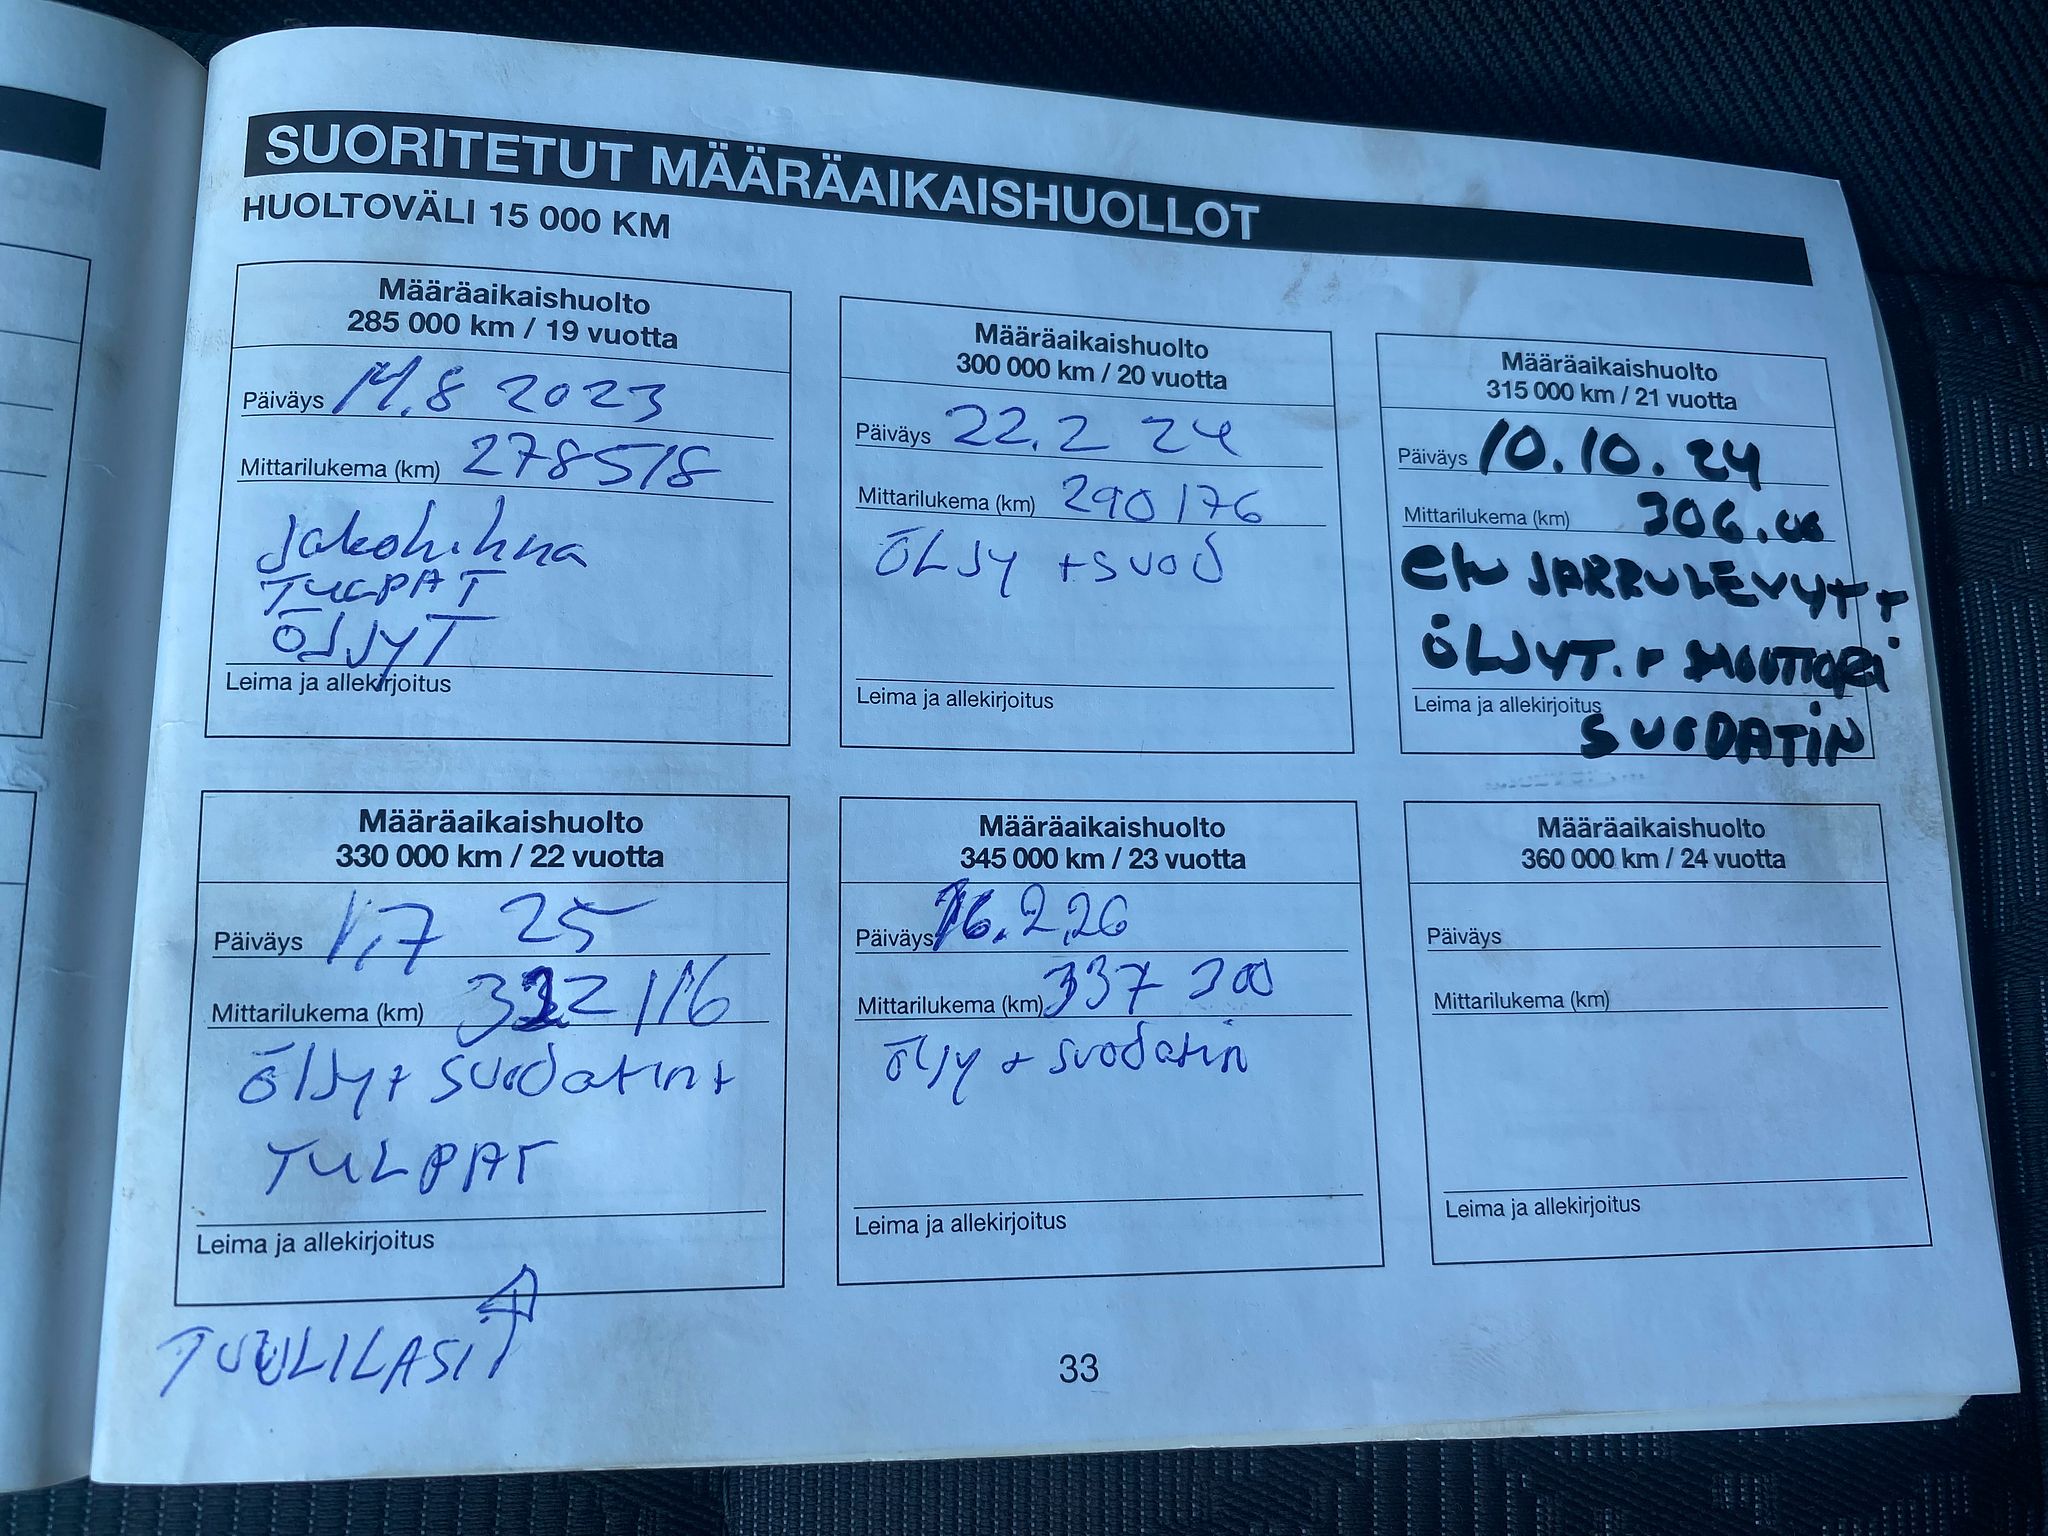 SUORITETUT MÄÄRÄAIKAISHUOLLOT
HUOLTOVÄLI 15 000 KM
Määräaikaishuolto
285 000 km / 19 vuotta
Päiväys 14.8 2023
Mittarilukema (km) 278518
Jakohihna
TULPAT
ÖLJYT
Leima ja allekirjoitus
Määräaikaishuolto
300 000 km / 20 vuotta
Päiväys 22.2 24
Mittarilukema (km) 290176
ÖLJY + SUOD
Leima ja allekirjoitus
Määräaikaishuolto
315 000 km / 21 vuotta
Päiväys 10.10.24
Mittarilukema (km) 306.00
etu JARRULEVYT +
ÖLJYT. + MOOTTORI
Leima ja allekirjoitus
SUODATIN
Määräaikaishuolto
330 000 km / 22 vuotta
Päiväys 1.7 25
Mittarilukema (km) 322 116
ÖLJY + SUODATIN +
TULPAT
Leima ja allekirjoitus
TUULILASI
Määräaikaishuolto
345 000 km / 23 vuotta
Päiväys 16.2.26
Mittarilukema (km) 337 300
ÖLJY + SUODATIN
Leima ja allekirjoitus
Määräaikaishuolto
360 000 km / 24 vuotta
Päiväys
Mittarilukema (km)
Leima ja allekirjoitus
33